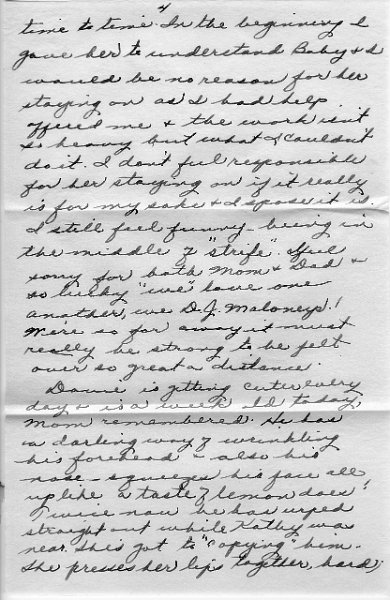 4
time to time. In the beginning I
gave her to understand Baby & I
would be no reason for her
staying on as I had help
offered me & the work isn't
so heavy but what I couldn't
do it. I don't feel responsible
for her staying on if it really
is for my sake & I spose it is.
I still feel funny - being in
the middle of "strife". I feel
sorry for both Mom & Dad &
so lucky "we" love one
another, we D.J. Maloneys!
We're so far away it must
really be strong to be felt
over so great a distance.
is getting cuter every
day & is a week old today,
Mom remembered. He has
a darling way of wrinkling
his forehead - also his
nose - squeezes his face all
up like a taste of lemon does!
Twice now he has urped
straight out while Kathy was
near. She's got to "copying" him.
She presses her lips together, hard;